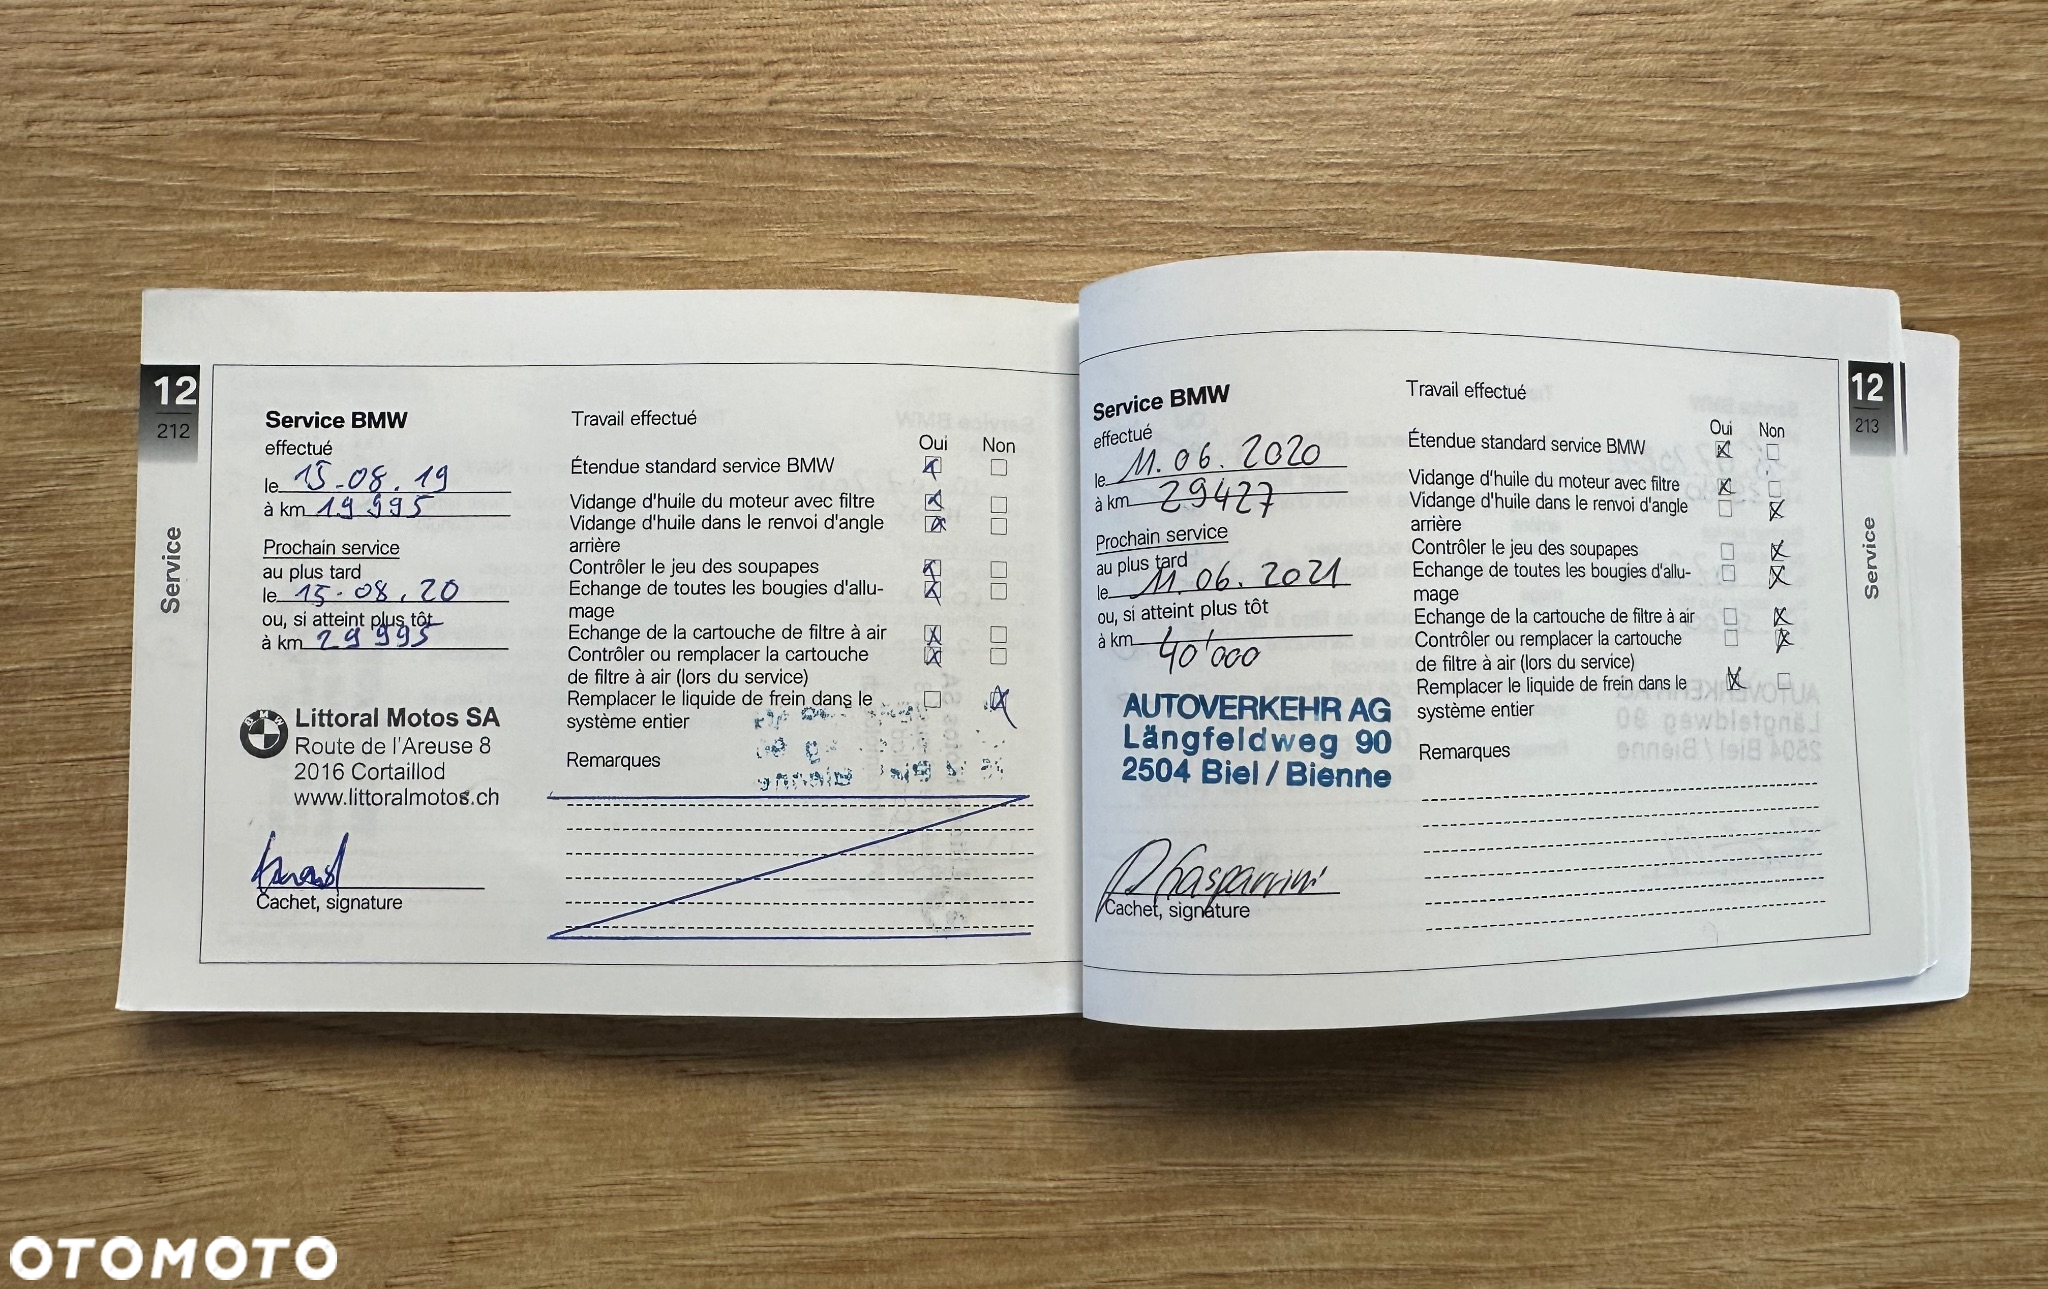 12
212
Service
Service BMW
effectué
le 15-08.19
à km 19995
Prochain service
au plus tard
le 15-08.20
ou, si atteint plus tôt
à km 29995
BMW
Littoral Motos SA
Route de l'Areuse 8
2016 Cortaillod
www.littoralmotos.ch
Cachet, signature
Travail effectué
Oui Non
Étendue standard service BMW
Vidange d'huile du moteur avec filtre
Vidange d'huile dans le renvoi d'angle
arrière
Contrôler le jeu des soupapes
Echange de toutes les bougies d'allu-
mage
Echange de la cartouche de filtre à air
Contrôler ou remplacer la cartouche
de filtre à air (lors du service)
Remplacer le liquide de frein dans le
système entier
Remarques
Service BMW
effectué
le 11.06.2020
à km 29427
Prochain service
au plus tard
le 11.06.2021
ou, si atteint plus tôt
à km 40'000
AUTOVERKEHR AG
Längfeldweg 90
2504 Biel / Bienne
Gasparrini
Cachet, signature
Travail effectué
Oui Non
Étendue standard service BMW
Vidange d'huile du moteur avec filtre
Vidange d'huile dans le renvoi d'angle
arrière
Contrôler le jeu des soupapes
Echange de toutes les bougies d'allu-
mage
Echange de la cartouche de filtre à air
Contrôler ou remplacer la cartouche
de filtre à air (lors du service)
Remplacer le liquide de frein dans le
système entier
Remarques
12
213
Service
OTOMOTO